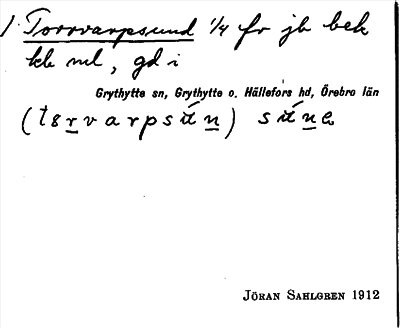 1. Torrvarpsund 1/4 fr jb bek
kb ml, gd i
Grythytte sn, Grythytte o. Hällefors hd, Örebro län
(tɵrvarpsún) súnə
JÖRAN SAHLGREN 1912